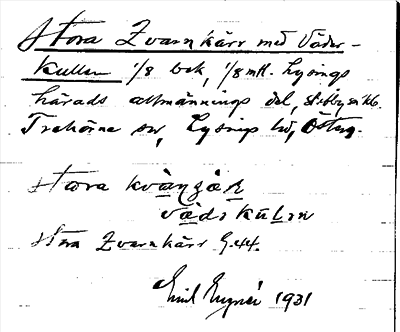 Stora Zvarnkärr med Väder-
kullen 1/8 bek, 1/8 mtl. Lysings
härads allmännings del,
Trehörna sn, Lysings hd, Östg.
stora kvàngàʀ
vädskulɩn
Stora Zvarnkärr G.44.
Emil 1931